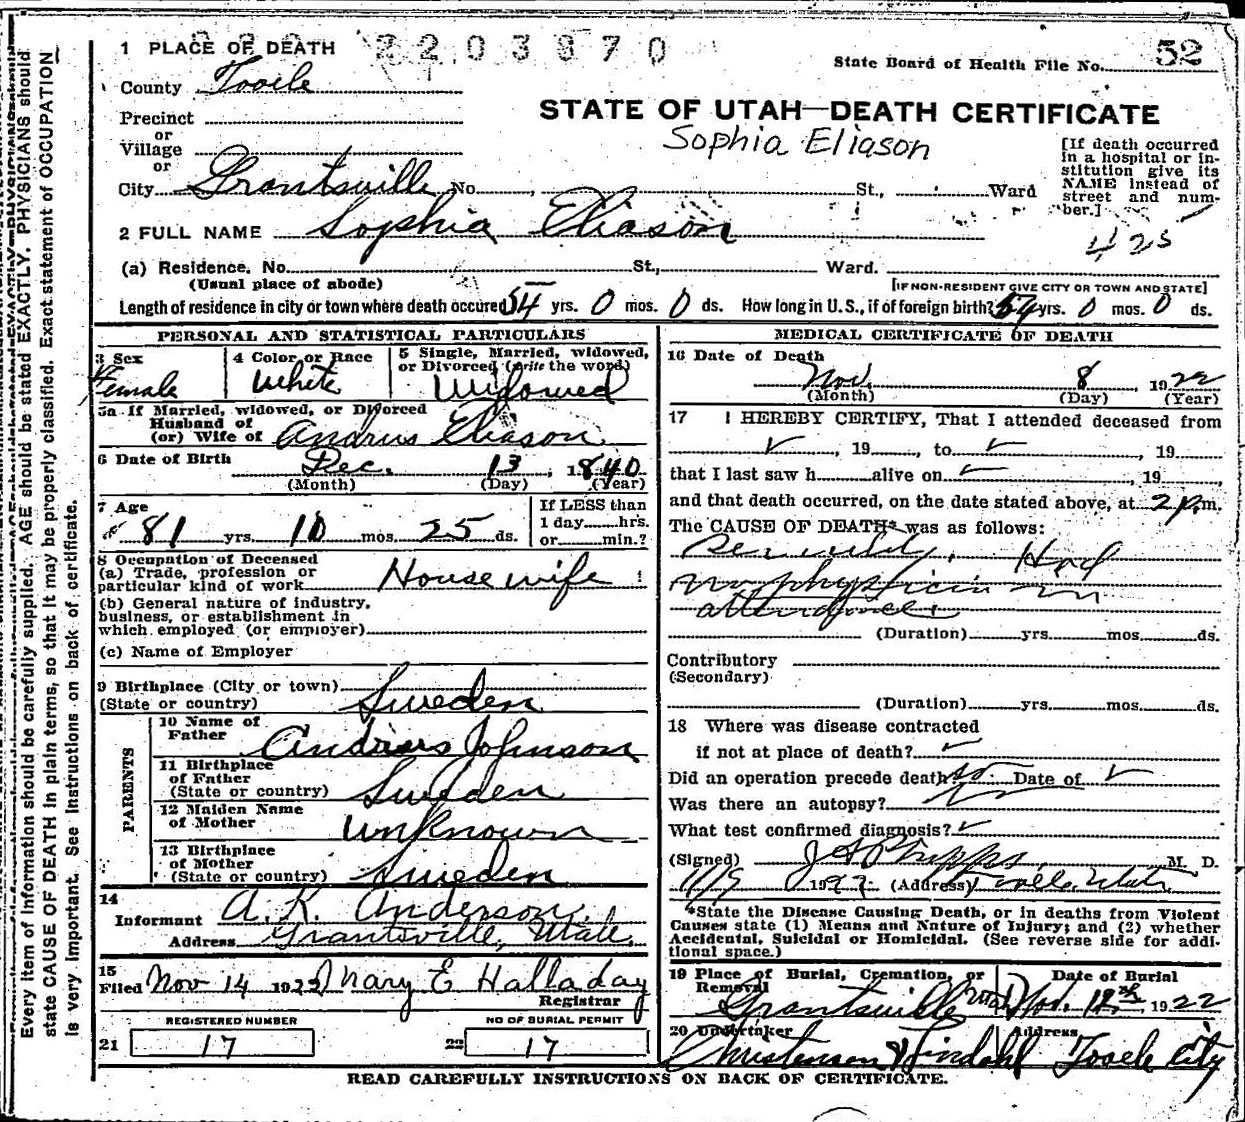 Every item of information should be carefully supplied. AGE should be stated EXACTLY. PHYSICIANS should
state CAUSE OF DEATH in plain terms, so that it may be properly classified. Exact statement of OCCUPATION
is very important. See instructions on back of certificate.
2203870
1 PLACE OF DEATH
State Board of Health File No. 52
County Tooele
STATE OF UTAH—DEATH CERTIFICATE
Sophia Eliason
Precinct
or
Village
or
City Grantsville No. St., Ward
[If death occurred
in a hospital or in-
stitution give its
NAME instead of
street and num-
ber.]
425
2 FULL NAME Sophia Eliason
(a) Residence. No. St., Ward.
(Usual place of abode)
[IF NON-RESIDENT GIVE CITY OR TOWN AND STATE]
Length of residence in city or town where death occured 54 yrs. 0 mos. 0 ds. How long in U.S., if of foreign birth? 54 yrs. 0 mos. 0 ds.
PERSONAL AND STATISTICAL PARTICULARS
3 Sex
Female
4 Color or Race
White
5 Single, Married, widowed,
or Divorced (write the word)
Widowed
5a If Married, widowed, or Divorced
Husband of
(or) Wife of Andrus Eliason
6 Date of Birth Dec. 13, 1840
(Month) (Day) (Year)
7 Age
81 yrs. 10 mos. 25 ds.
If LESS than
1 day hrs.
or min.?
8 Occupation of Deceased
(a) Trade, profession or
particular kind of work Housewife
(b) General nature of industry,
business, or establishment in
which employed (or employer)
(c) Name of Employer
9 Birthplace (City or town)
(State or country) Sweden
PARENTS
10 Name of
Father Andrus Johnson
11 Birthplace
of Father
(State or country) Sweden
12 Maiden Name
of Mother Unknown
13 Birthplace
of Mother
(State or country) Sweden
14
Informant A. K. Anderson.
Address Grantsville, Utah.
15
Filed Nov 14 1922 Mary E Halladay
Registrar
REGISTERED NUMBER
21 17
NO OF BURIAL PERMIT
22 17
MEDICAL CERTIFICATE OF DEATH
16 Date of Death
Nov. 8, 1922
(Month) (Day) (Year)
17 I HEREBY CERTIFY, That I attended deceased from
, 19 , to , 19
that I last saw h alive on , 19 ,
and that death occurred, on the date stated above, at 2 p.m.
The CAUSE OF DEATH* was as follows:
Senility. Had
no physician in
attendance.
(Duration) yrs. mos. ds.
Contributory
(Secondary)
(Duration) yrs. mos. ds.
18 Where was disease contracted
if not at place of death?
Did an operation precede death Date of
Was there an autopsy?
What test confirmed diagnosis?
(Signed) J A Phipps, M. D.
11/9 1922 (Address) Tooele, Utah
*State the Disease Causing Death, or in deaths from Violent
Causes state (1) Means and Nature of Injury; and (2) whether
Accidental, Suicidal or Homicidal. (See reverse side for addi-
tional space.)
19 Place of Burial, Cremation, or
Removal
Grantsville Utah
Date of Burial
Nov. 12th, 1922
20 Undertaker
Christensen & Lindahl
Address
Tooele City
READ CAREFULLY INSTRUCTIONS ON BACK OF CERTIFICATE.